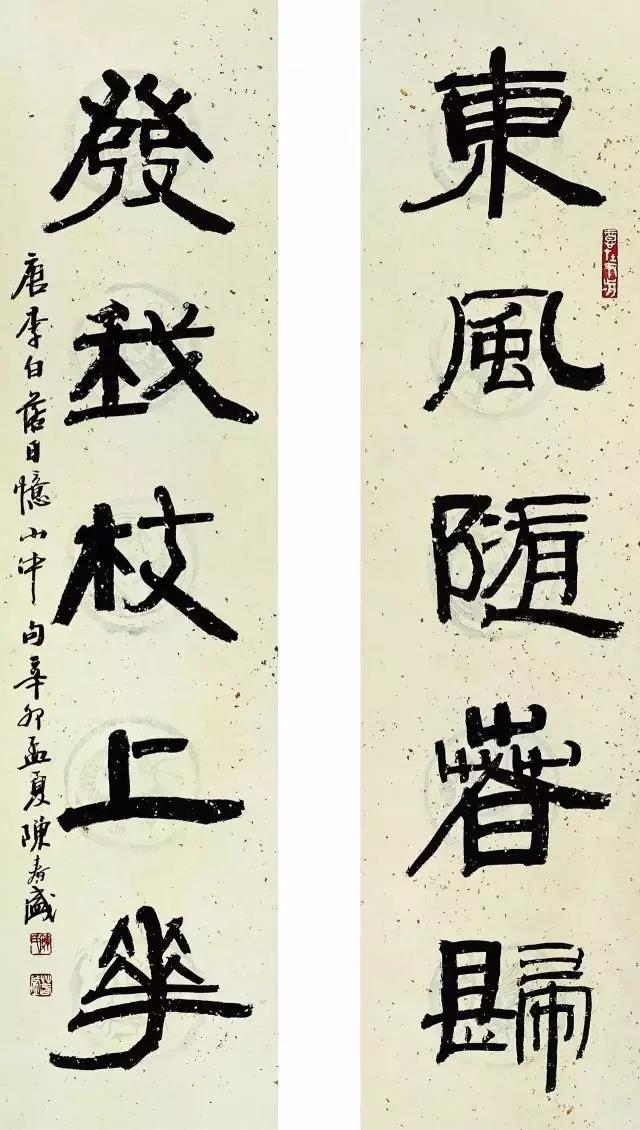 東風隨萅歸
發我枝上華
唐李白落日憶山中句辛卯孟夏陳春盛